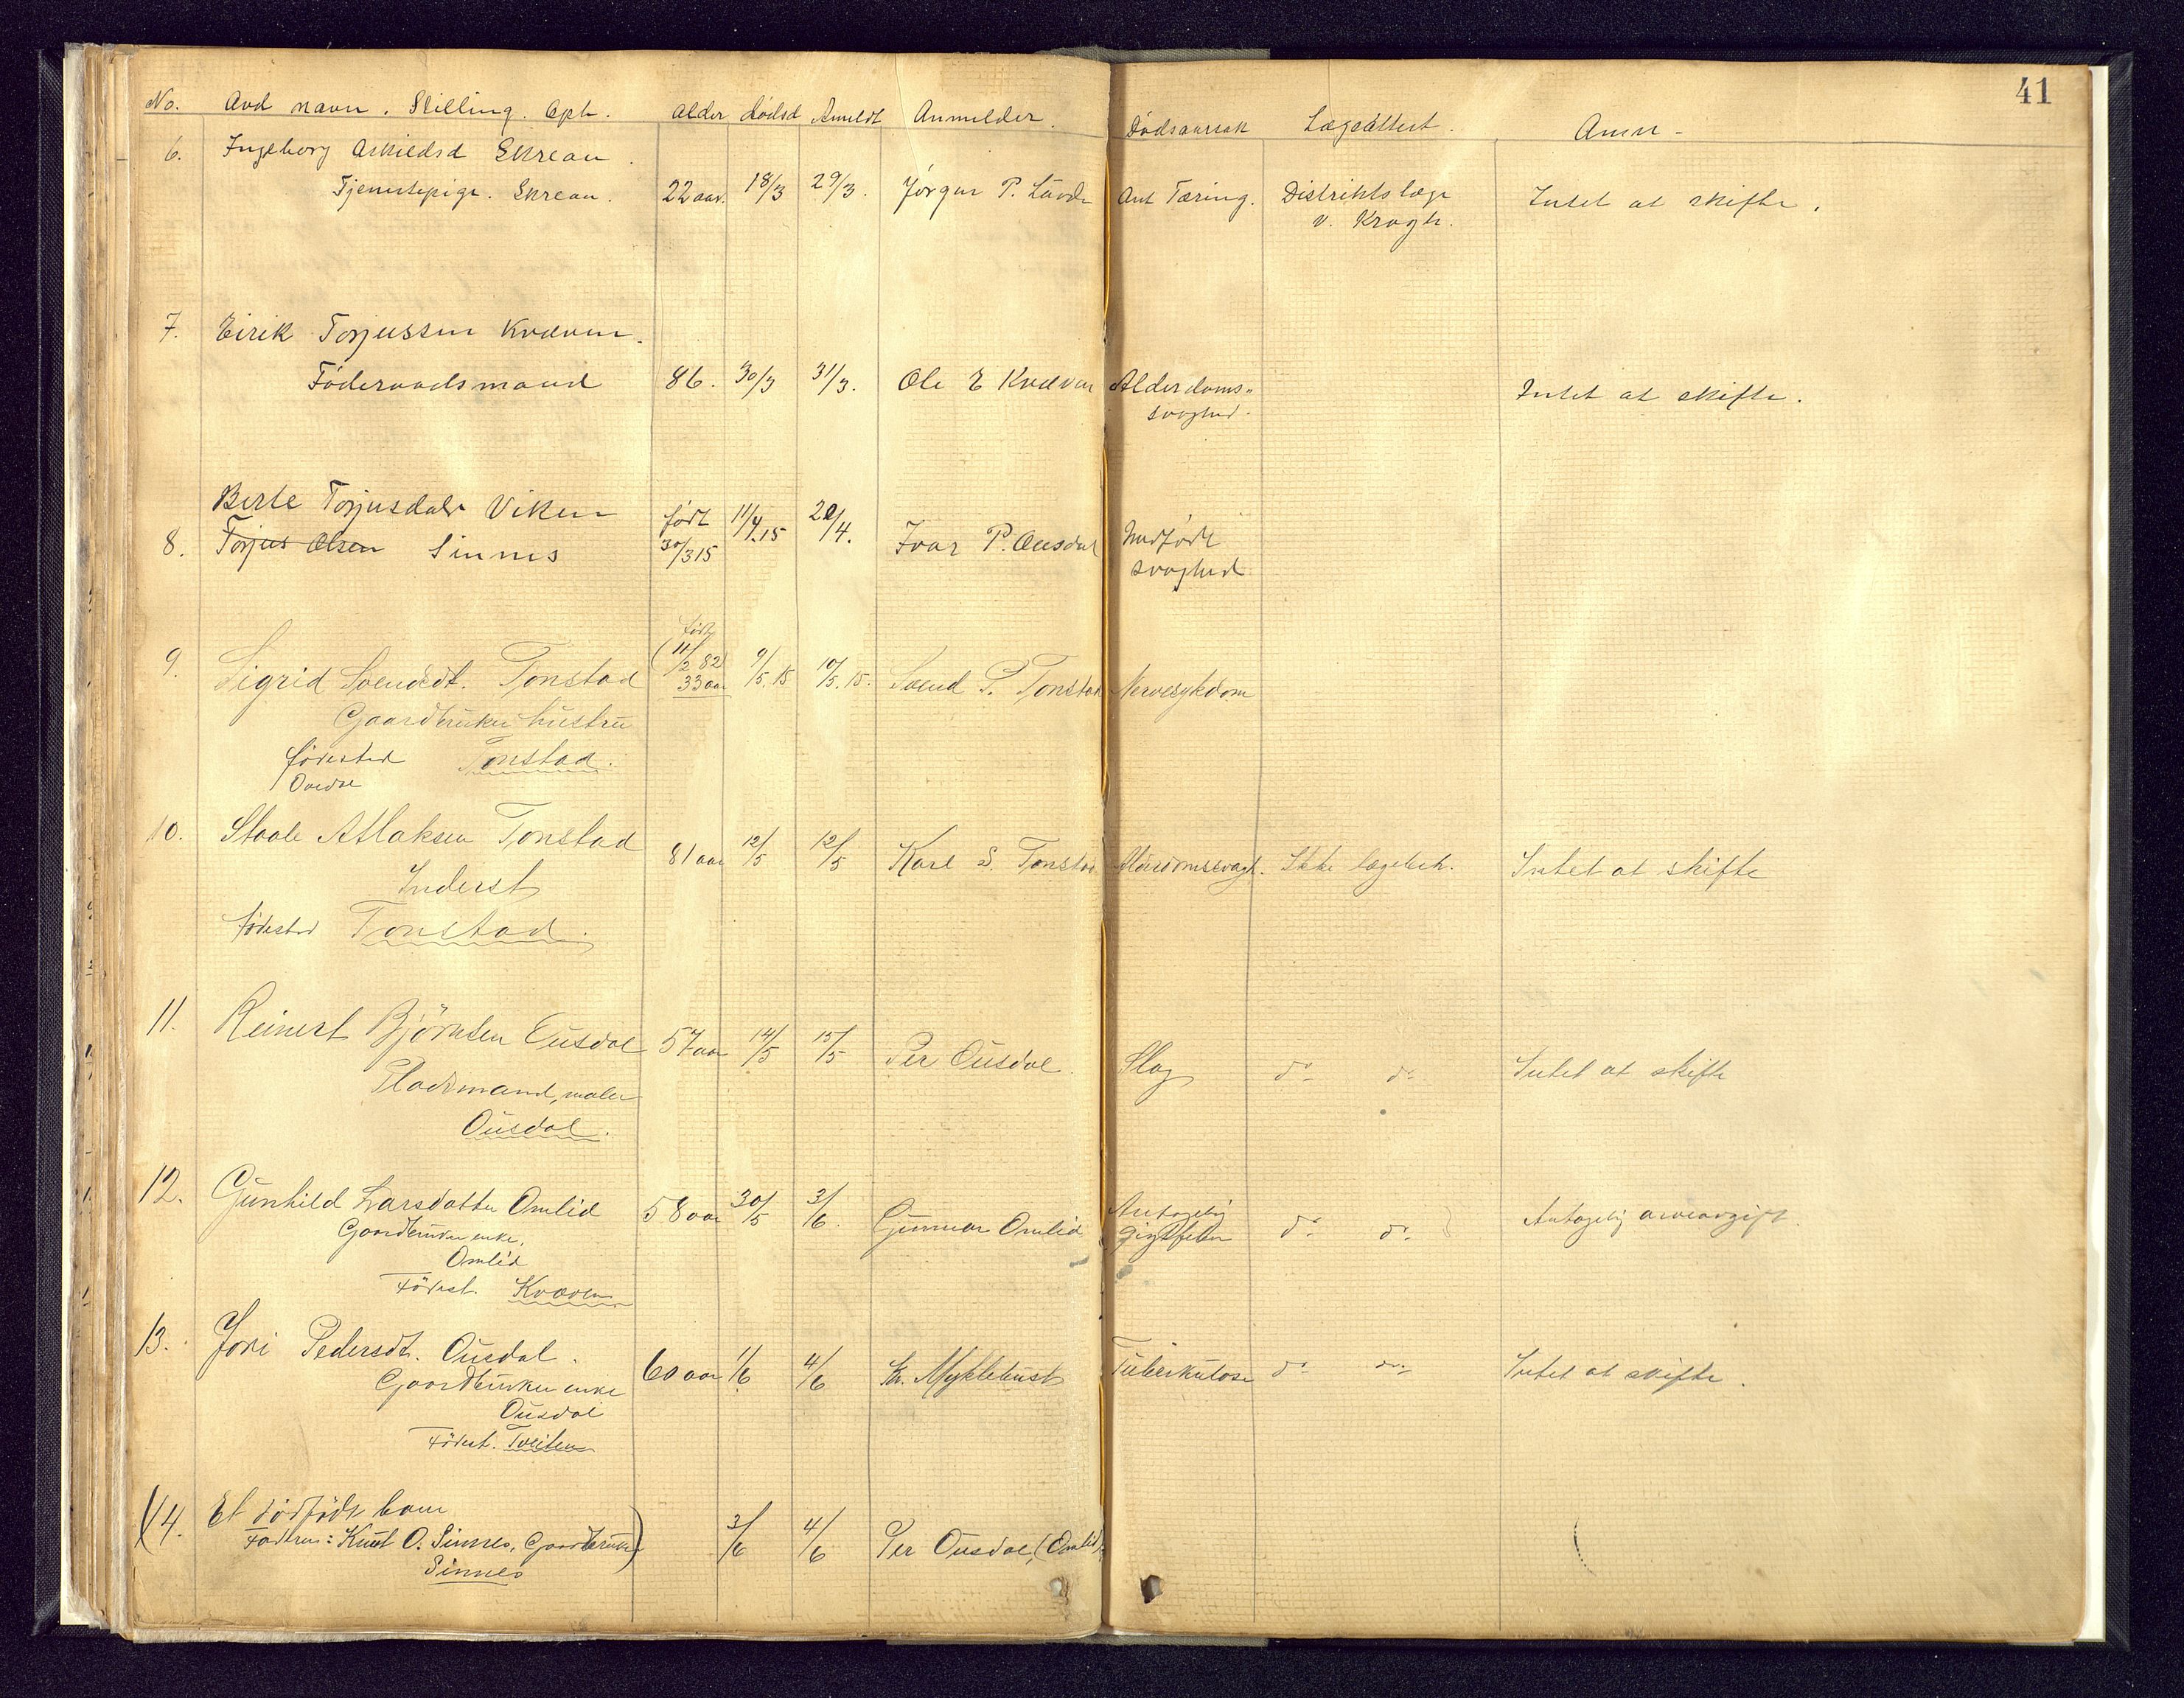 41
No. Avd navn. Stilling. Oph. Alder dødsd Anmeldt Anmelder. Dødsaarsak Lægeattest. Anm -
6. Ingeborg Askiedsd Skreaa
Tjenestepige. Skreaa. 22 aar. 18/3 29/3. Jørgen P. Ant Tæring. Distriktslæge Intet at skifte.
v. Krogh.
7. Eirik Torjussen Kvæven.
Føderaadsmand 86. 30/3 31/3. Ole E Kvæven Alderdoms- Intet at skifte.
svaghed.
Berte Torjusdatr Viken født 11/4.15 20/4.
8. Torjus Olsen Sinnes 30/3 15 Ivar P. Ousdal Medfødt
svaghed
født
9. Sigrid Svendsdt. Tonstad (11/2 82) 33 aar 9/5.15 10/5.15. Svend T. Tonstad Nervesykdom
Gaardbruker hustru
fødested Tonstad.
Ovedre
10. Staale Atlaksen Tonstad 81 aar 12/5 12/5 Karl S. Tonstad Alderdomssvagh. Ikke lægebeh. Intet at skifte
Inderst
fødested Tonstad.
11. Reinert Björnsen Ousdal 57 aar 14/5 15/5 Per Ousdal. Slag do- do- Intet at skifte
Pladsmand, maler
Ousdal.
12. Gunhild Larsdatter Omlid 58 aar 30/5 3/6. Gunnar Omlid Antagelig do- do- Antagelig arveavgift.
Gaardbruker enke, gigtfeber
Omlid
Födest. Kvæven
13. Joni Pedersdt. Ousdal. 60 aar 1/6 4/6 Kr. Myklebust Tuberkulose do- do- Intet at skifte.
Gaardbruker enke
Ousdal
Födest. Tveiten
(14. Et dødfødt barn
Fadren: Knut O. Sinnes, Gaardbruker) 3/6 4/6 Per Ousdal, (Omlid)
Sinnes